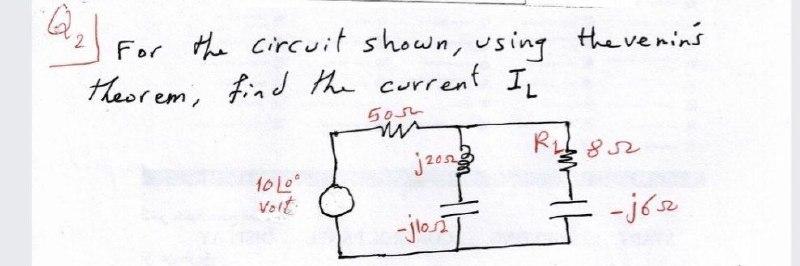 Q2
For the circuit shown, using thevenin's
theorem, find the current IL
50Ω
j20Ω
RL 8Ω
10∠0°
Volt
-j10Ω
-j6Ω